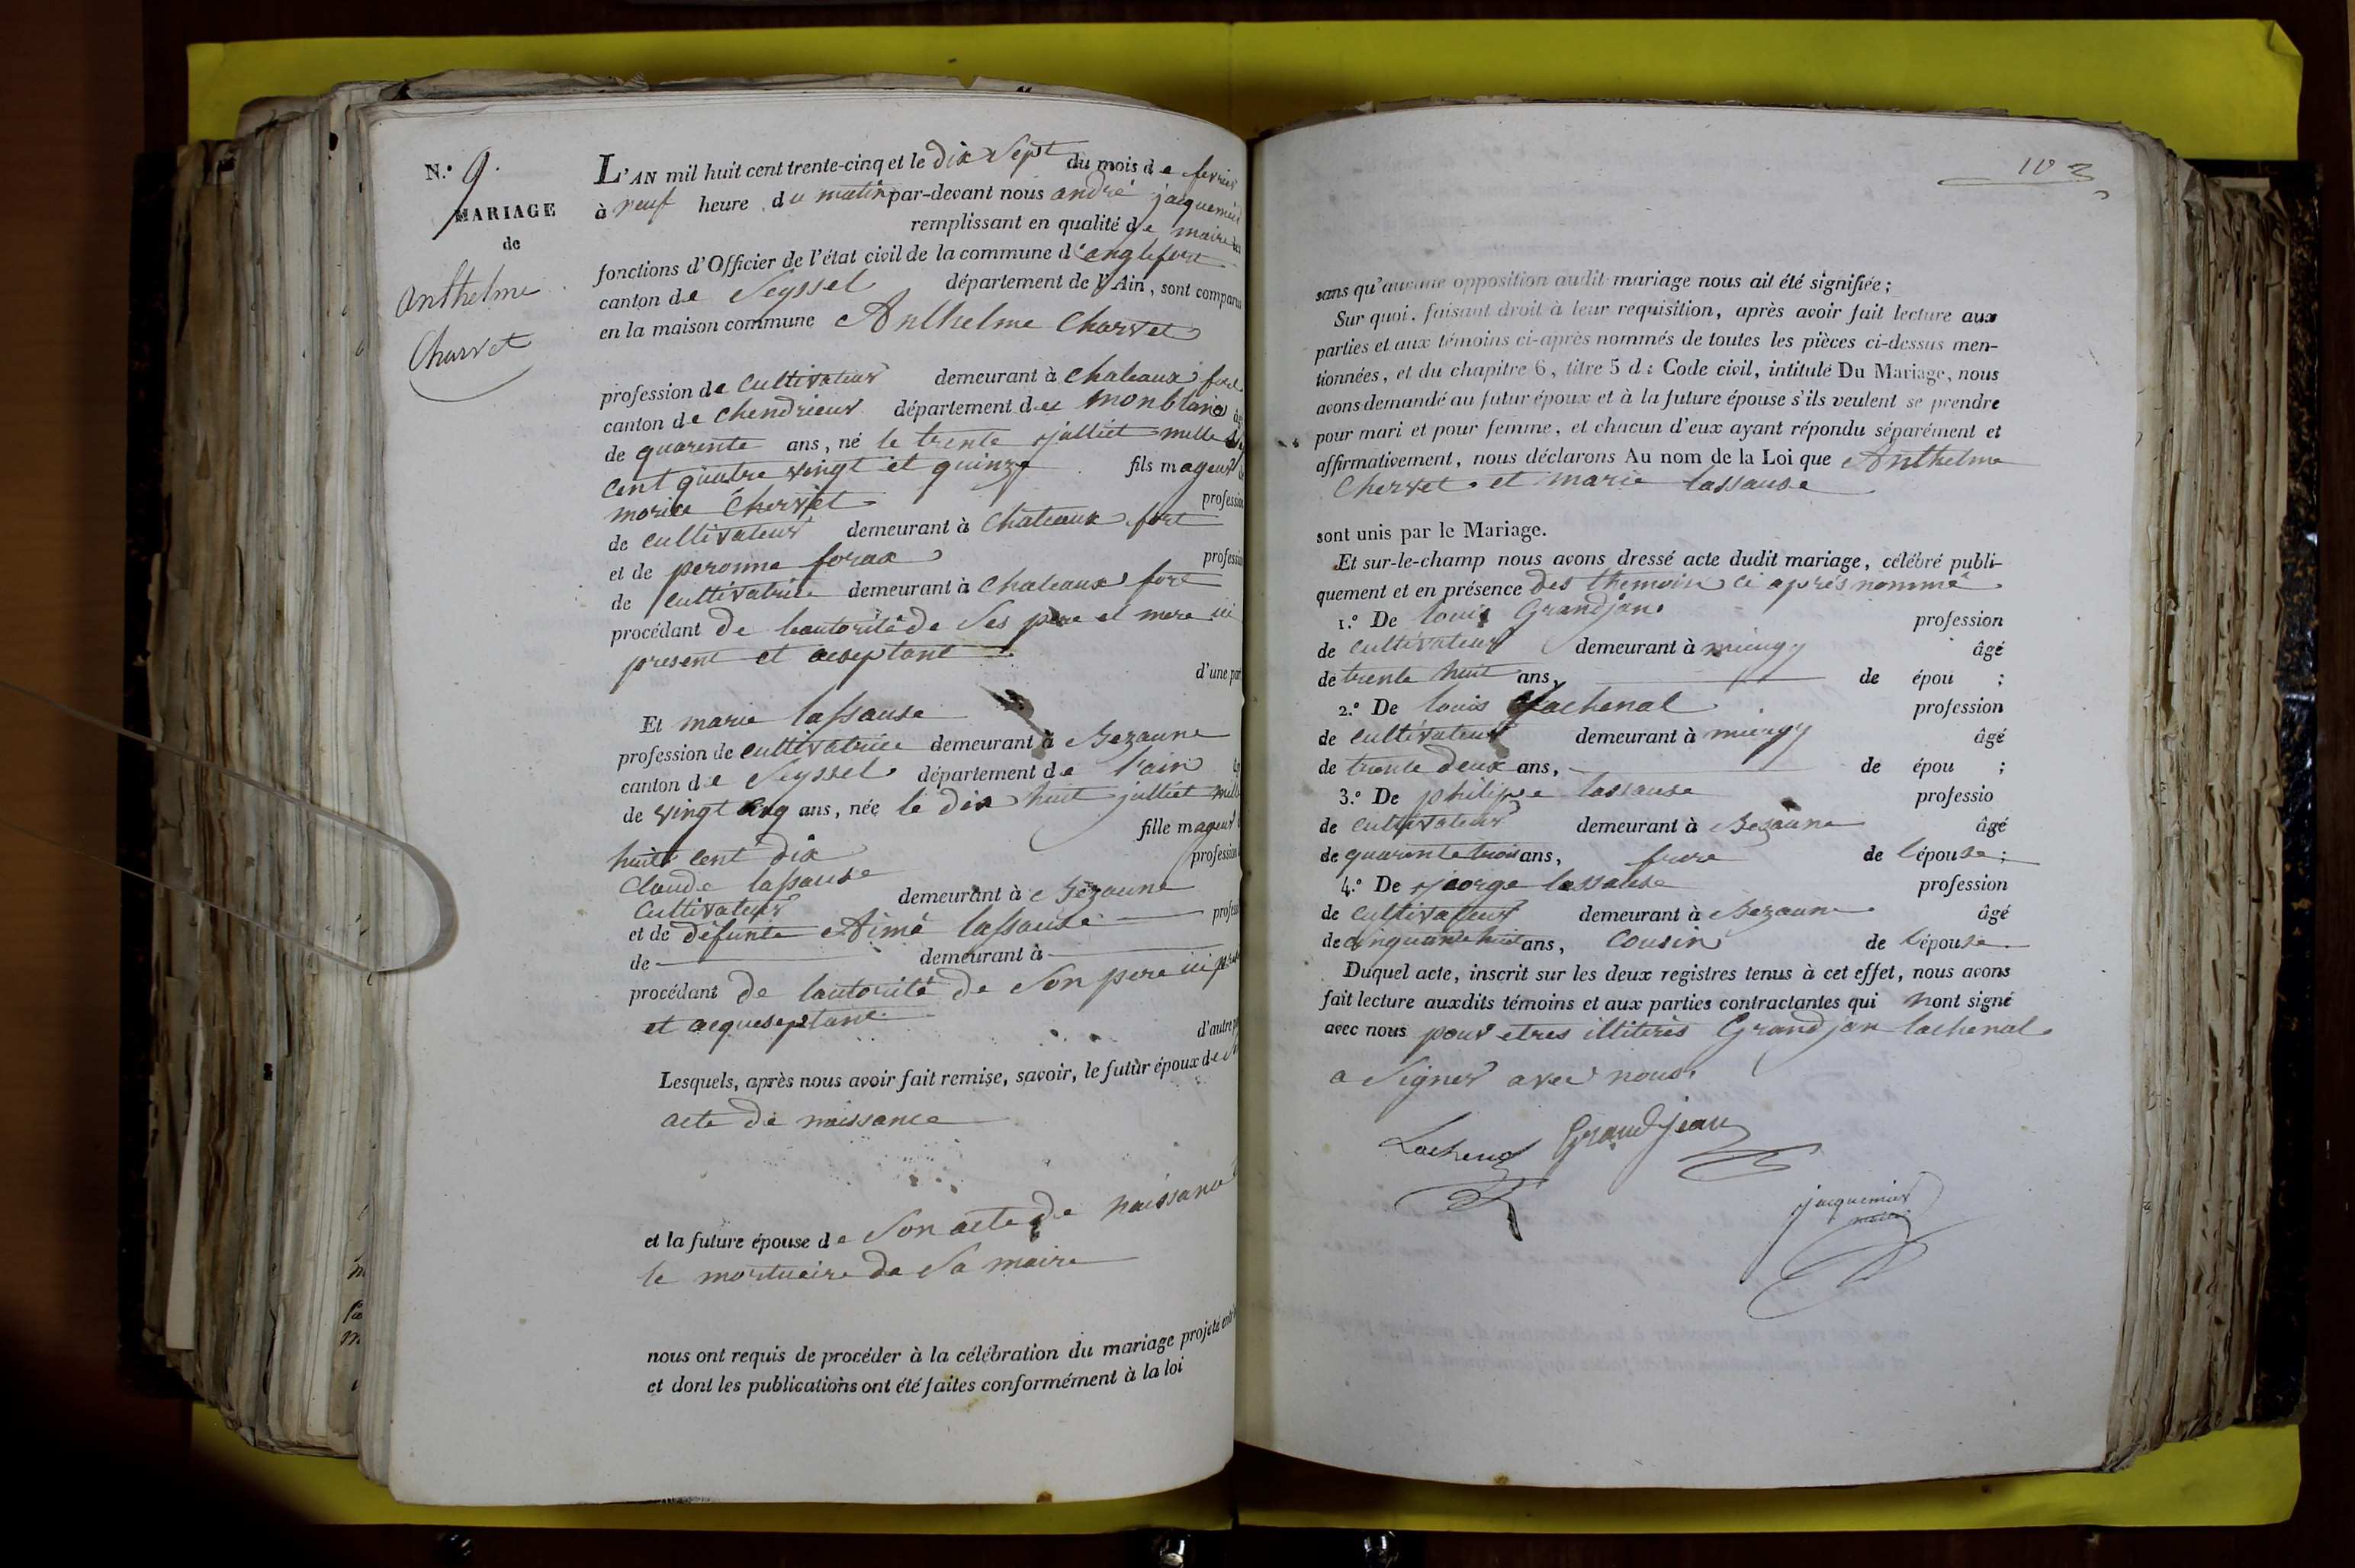 N.° 9.
MARIAGE
de
Anthelme
Charvet
L'AN mil huit cent trente-cinq et le dix Sept du mois de fevrier
à neuf heure du matin par-devant nous andré jacquemier
remplissant en qualité de maire les
fonctions d'Officier de l'état civil de la commune d'anglefort
canton de Seyssel département de l'Ain, sont comparus
en la maison commune Anthelme Charvet
profession de Cultivateur demeurant à Chateaux fort
canton de Chendrieux département du monblanc
de quarente ans, né le trente juilliet mille
Cent quatre vingt et quinze fils mageur
morice Chervet profession
de cultivateur demeurant à Chateaux fort
et de peronne forax profession
de Cultivatrice demeurant à Chateaux fort
procédant de leautorité de Ses pere et mere ici
present et acseptant
d'une part
Et marie lassause
profession de cultivatrice demeurant à Bezaune
canton de Seyssel département de l'ain
de vingt cinq ans, née le dix huit julliet mille
huit cent dix fille mageur
Claude lassause profession
Cultivateur demeurant à Bezaune
et de défunte Aimé lassause
de demeurant à
procédant de lautorité de Son pere ici
et acqueseptant
d'autre
Lesquels, après nous avoir fait remise, savoir, le futur époux de
acte de naissance
et la future épouse de Son acte de naissance
le mortuaire de Sa maire
nous ont requis de procéder à la célébration du mariage projeté
et dont les publications ont été faites conformément à la loi
103
sans qu'aucune opposition audit mariage nous ait été signifiée;
Sur quoi, faisant droit à leur requisition, après avoir fait lecture aux
parties et aux témoins ci-après nommés de toutes les pièces ci-dessus men-
tionnées, et du chapitre 6, titre 5 du Code civil, intitulé Du Mariage, nous
avons demandé au futur époux et à la future épouse s'ils veulent se prendre
pour mari et pour femme, et chacun d'eux ayant répondu séparément et
affirmativement, nous déclarons Au nom de la Loi que Anthelme
Chervet et marie lassause
sont unis par le Mariage.
Et sur-le-champ nous avons dressé acte dudit mariage, célébré publi-
quement et en présence des themoin ci après nommé
1.° De louis Grandjan profession
de cultivateur demeurant à mieugy âgé
de trente huit ans, de épou ;
2.° De louis lachenal profession
de cultivateur demeurant à mieugy âgé
de trente deux ans, de épou ;
3.° De philipe lassause professio
de cultivateur demeurant à Bezaune âgé
de quarante trois ans, frere de l'épouse;
4.° De jeorge lassause profession
de cultivateur demeurant à Bezaune âgé
de cinquante huit ans, Cousin de l'épouse
Duquel acte, inscrit sur les deux registres tenus à cet effet, nous avons
fait lecture auxdits témoins et aux parties contractantes qui nont signé
avec nous pour etres illiterés Grandjan lachenal
a Signer avec nous.
Lachenal Grandjean
jacquemier
maire